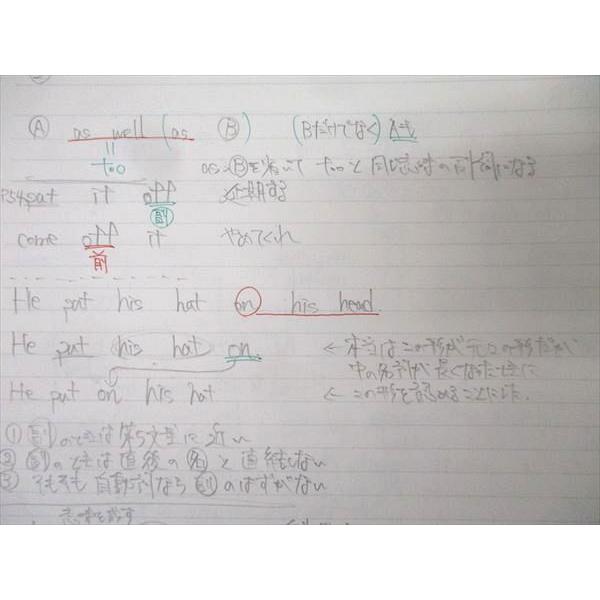 Ⓐ as well (as Ⓑ) (Bだけでなく) Aも
too as Ⓑを省いて tooと同じ意味の副詞になる
P54 put it off 延期する
副
come off it やめてくれ
前
He put his hat on his head.
He put his hat on. ← 本当はこの形が元々の形だが
中の名詞が長くなった時に
He put on his hat ← この形を認めることにした.
① 副のときは第5文型に近い
② 副のときは直後の名と直結しない
③ そもそも自動詞なら副のはずがない
意味を成す